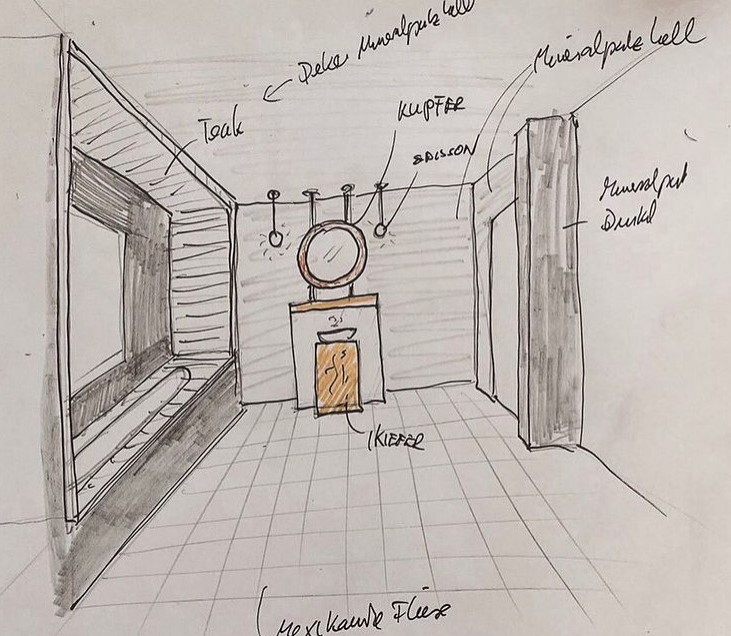 Decke Mineralputz hell
Mineralputz hell
KUPFER
Teak
EDISSON
Mineralputz
Dunkel
KIEFER
Mexikanische Fliese